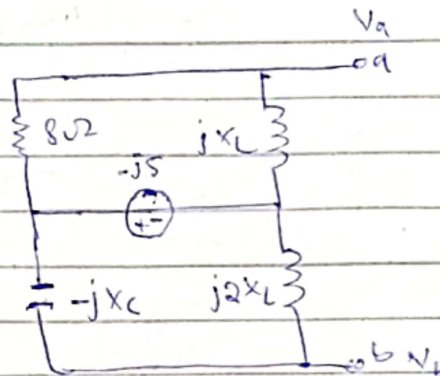 Va
a
8Ω
jXL
-j5
+-
-jXc
j2XL
b